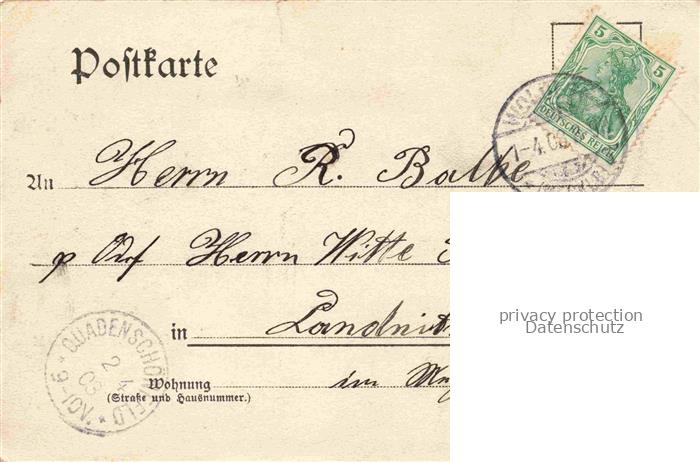 Postkarte
5 5
DEUTSCHES REICH
1-4.08
An Herrn R. Balke
p Adr Herrn Witte
in
QUADENSCHÖNFELD
2 4
08
Wohnung
(Straße und Hausnummer.)
im
privacy protection
Datenschutz